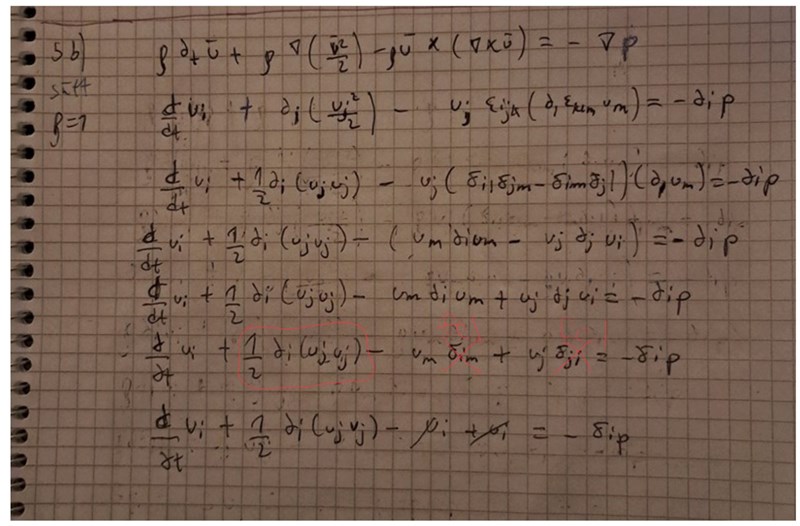 5b) ρ ∂ₜ ū + ρ ∇(v̄²/2) − ρū × (∇×ū) = − ∇p
ρ=1 d/dt vᵢ + ∂ⱼ(vⱼ²/2) − vⱼ εᵢⱼₖ(∂ₗ εₖₗₘ vₘ) = −∂ᵢ p
d/dt vᵢ + 1/2 ∂ᵢ(vⱼvⱼ) − vⱼ(δᵢₗ δⱼₘ − δᵢₘ δⱼₗ)(∂ₗ vₘ) = −∂ᵢp
d/dt vᵢ + 1/2 ∂ᵢ(vⱼvⱼ) − (vₘ ∂ᵢvₘ − vⱼ ∂ⱼ vᵢ) = −∂ᵢp
d/dt vᵢ + 1/2 ∂ᵢ(vⱼvⱼ) − vₘ ∂ᵢ vₘ + vⱼ ∂ⱼ vᵢ = −∂ᵢp
d/dt vᵢ + 1/2 ∂ᵢ(vⱼvⱼ) − vₘ δᵢₘ + vⱼ δⱼᵢ = −δᵢp
d/dt vᵢ + 1/2 ∂ᵢ(vⱼvⱼ) − vᵢ + vᵢ = − δᵢp